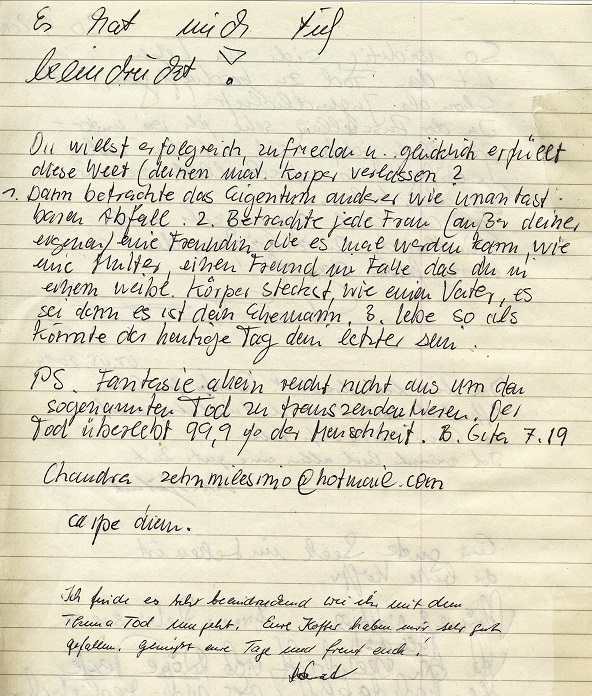 Es hat mich tief
beeindruckt!
Du willst erfolgreich, zufrieden u. glücklich erfüllt
diese Welt (deinen mat. Körper verlassen?
1. Dann betrachte das Eigentum anderer wie unantast-
baren Abfall. 2. Betrachte jede Frau (außer deiner
eigenen) eine Freundin, die es mal werden kann, wie
eine Mutter, einen Freund im Falle das du in
einem weibl. Körper steckst, wie einen Vater, es
sei denn es ist dein Ehemann. 3. lebe so als
könnte der heutige Tag dein letzter sein.
PS. Fantasie allein reicht nicht aus um den
sogenannten Tod zu transzendentieren. Der
Tod überlebt 99,9 % der Menschheit. B. Gita 7.19
Chandra zehnmilesimo@hotmail.com
carpe diem.
Ich finde es sehr beeindruckend wie ihr mit dem
Thema Tod umgeht. Eure Koffer haben mir sehr gut
gefallen. Genießt eure Tage und freut euch!